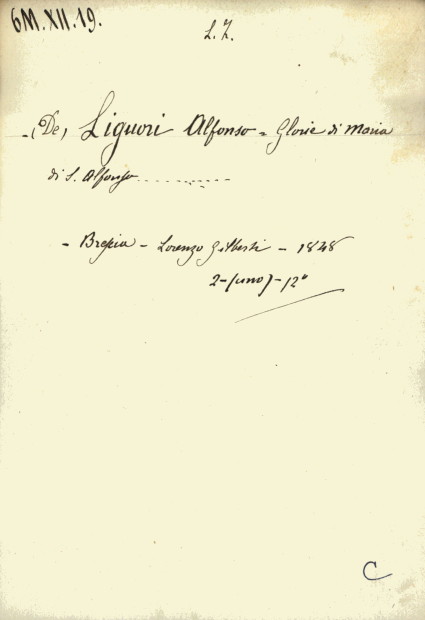 6M.XII.19.
L.Z.
-(De) Liguori Alfonso = Glorie di Maria
di S. Alfonso...........
- Brescia - Lorenzo Gilberti - 1848
2-(uno)-12°
C